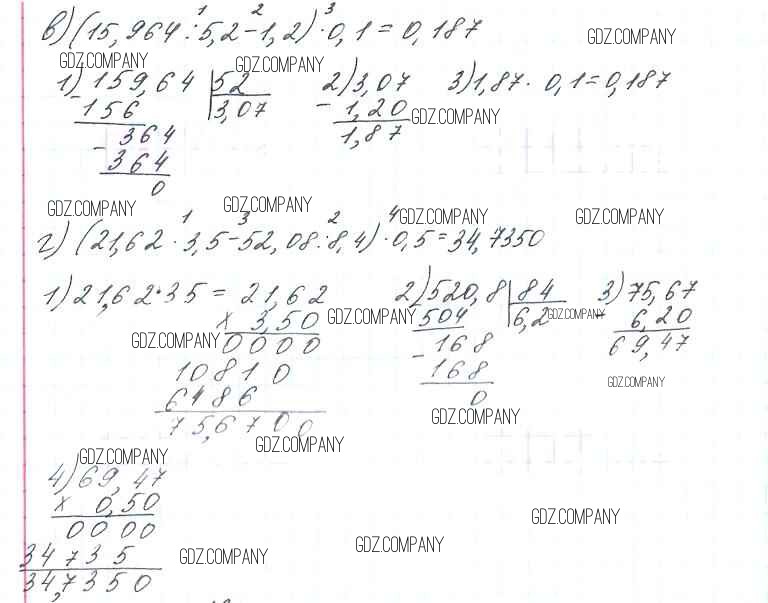 в) (15,964 : 5,2 - 1,2) · 0,1 = 0,187
1 2 3
GDZ.COMPANY
GDZ.COMPANY GDZ.COMPANY
1) 159,64 | 52 2) 3,07 3) 1,87 · 0,1 = 0,187
- 156 3,07 - 1,20 GDZ.COMPANY
- 364 1,87
364
0
GDZ.COMPANY GDZ.COMPANY GDZ.COMPANY GDZ.COMPANY
1 3 2 4
г) (21,62 · 3,5 - 52,08 : 8,4) · 0,5 = 34,7350
1) 21,62 · 35 = 21,62 2) 520,8 | 84 3) 75,67
x 3,50 GDZ.COMPANY 504 6,2 GDZ.COMPANY - 6,20
GDZ.COMPANY 0000 - 168 69,47
10810 168 GDZ.COMPANY
6486 0
75,6700 GDZ.COMPANY GDZ.COMPANY
GDZ.COMPANY
4) 69,47
x 0,50
0000 GDZ.COMPANY
34735 GDZ.COMPANY GDZ.COMPANY
34,7350